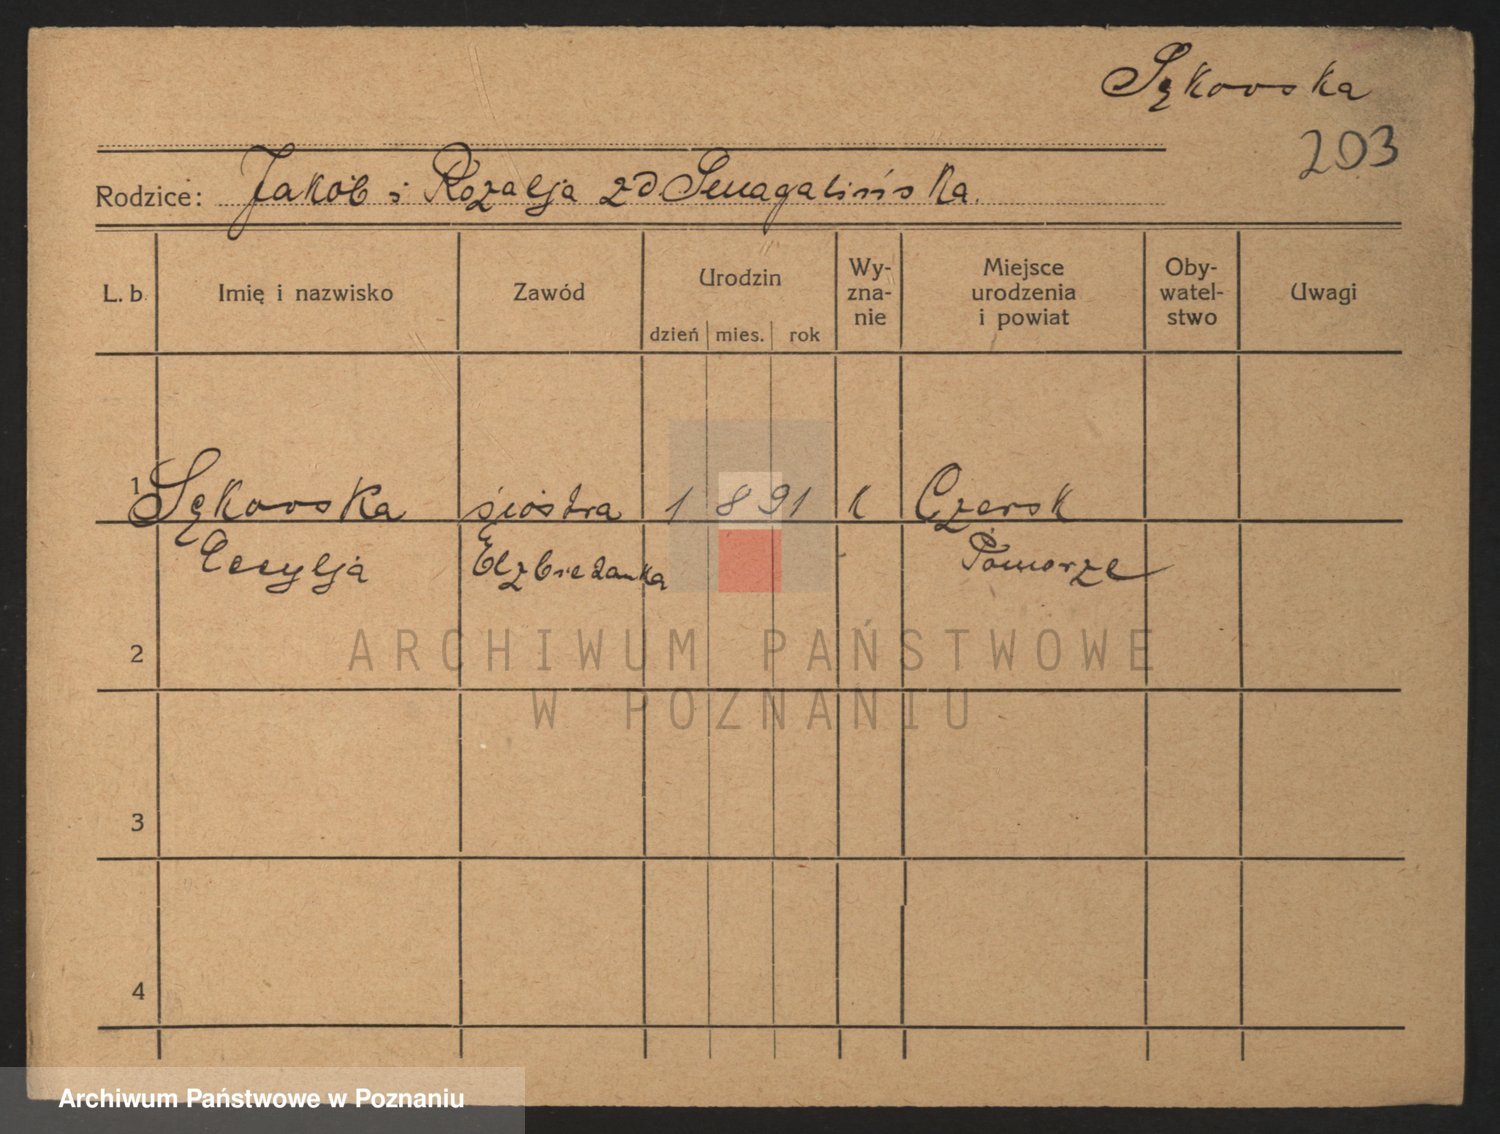 Sękowska
203
Rodzice: Jakób i Rozalja zd Smagalińska.
L. b. Imię i nazwisko Zawód Urodzin Wy-zna-nie Miejsce urodzenia i powiat Oby-watel-stwo Uwagi
dzień mies. rok
1 Sękowska siostra 1 8 91 k Czersk
Cecylja Elzbietanka Pomorze
2
3
4
ARCHIWUM PAŃSTWOWE
W POZNANIU
Archiwum Państwowe w Poznaniu